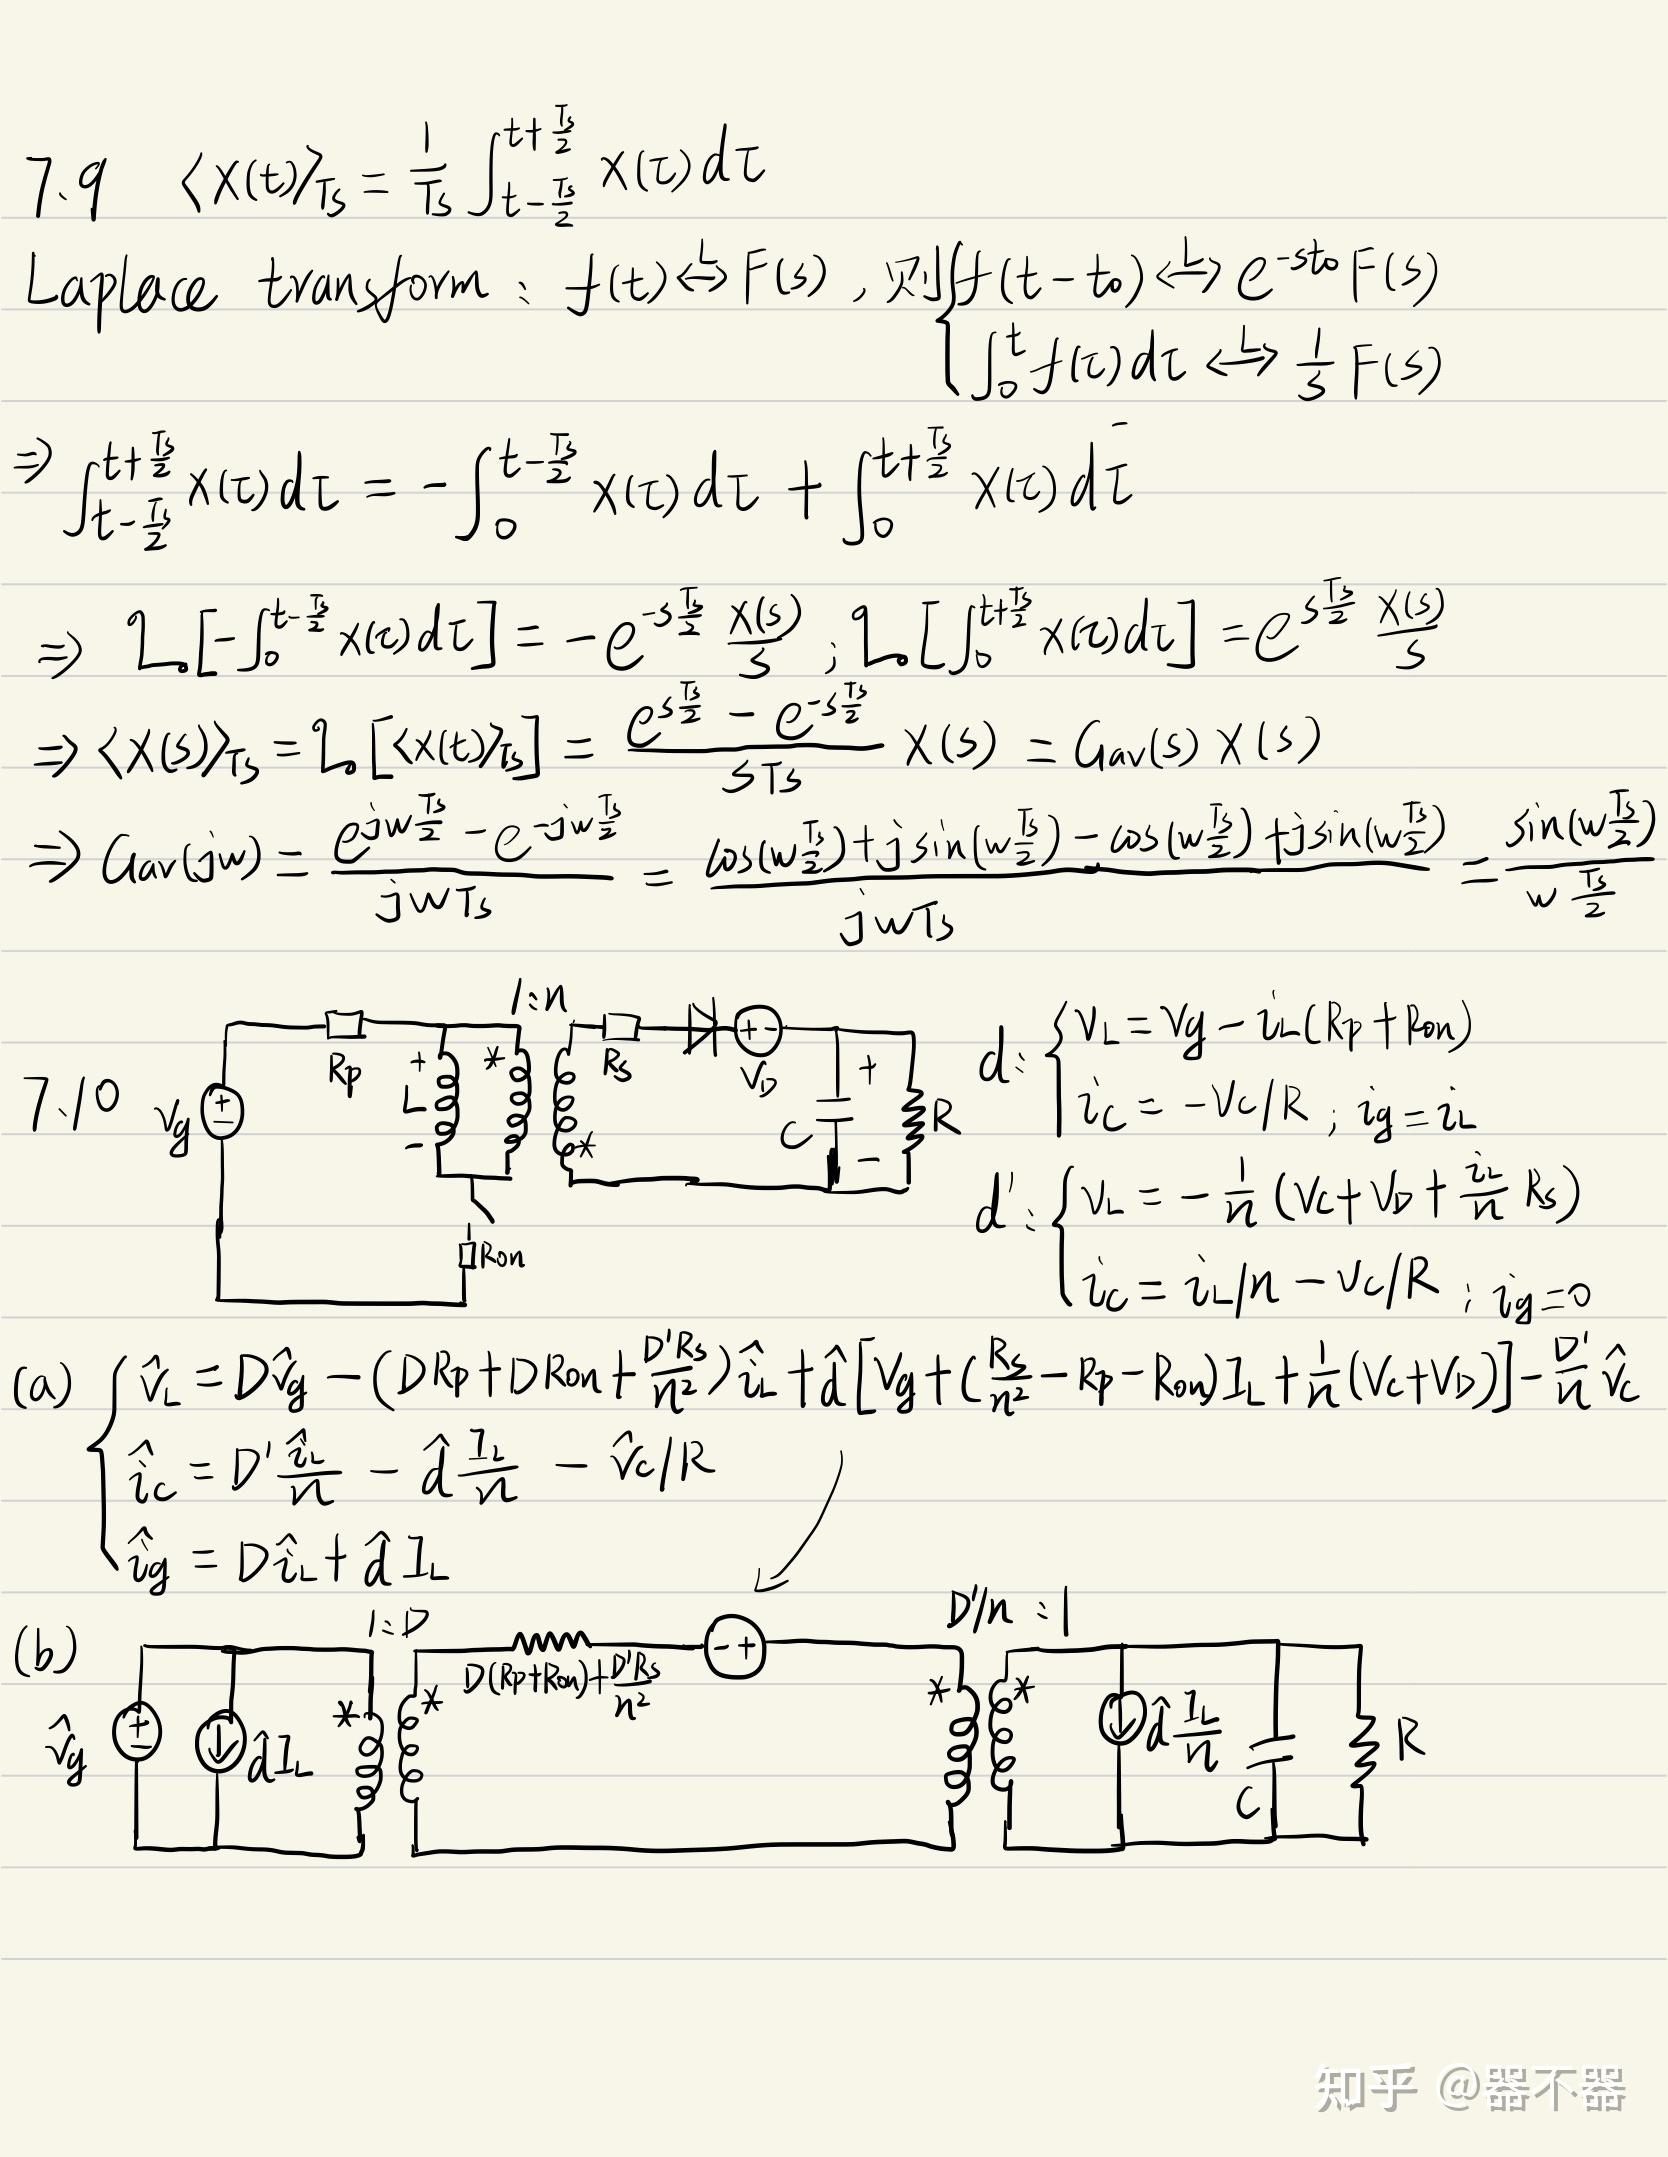 7.9 ⟨x(t)⟩_Ts = 1/Ts ∫_{t-Ts/2}^{t+Ts/2} x(τ)dτ
Laplace transform: f(t) ⟷^L F(s), 则{ f(t-t₀) ⟷^L e^{-st₀}F(s)
∫_0^t f(τ)dτ ⟷^L 1/s F(s)
⇒ ∫_{t-Ts/2}^{t+Ts/2} x(τ)dτ = -∫_0^{t-Ts/2} x(τ)dτ + ∫_0^{t+Ts/2} x(τ)dτ
⇒ L[-∫_0^{t-Ts/2} x(τ)dτ] = -e^{-s Ts/2} X(s)/s ; L[∫_0^{t+Ts/2} x(τ)dτ] = e^{s Ts/2} X(s)/s
⇒ ⟨X(s)⟩_Ts = L[⟨x(t)⟩_Ts] = (e^{s Ts/2} - e^{-s Ts/2})/(sTs) X(s) = Gav(s) X(s)
⇒ Gav(jw) = (e^{jw Ts/2} - e^{-jw Ts/2})/(jwTs) = (cos(w Ts/2) + j sin(w Ts/2) - cos(w Ts/2) + j sin(w Ts/2))/(jwTs) = sin(w Ts/2)/(w Ts/2)
7.10
Vg
+
-
Rp
+
L
-
*
1:n
*
Rs
+ -
V_D
C
+
-
R
Ron
d: { v_L = Vg - i_L(Rp+Ron)
i_C = -Vc/R ; ig = i_L
d': { v_L = -1/n (Vc + V_D + i_L/n Rs)
i_C = i_L/n - Vc/R ; ig = 0
(a) { v̂_L = Dv̂g - (DRp + DRon + D'Rs/n²) î_L + d̂[Vg + (Rs/n² - Rp - Ron)I_L + 1/n (Vc + V_D)] - D'/n v̂c
îc = D' î_L/n - d̂ I_L/n - v̂c/R
îg = Dî_L + d̂ I_L
(b)
v̂g
+
-
d̂ I_L
1:D
*
*
D(Rp+Ron) + D'Rs/n²
- +
D'/n : 1
*
*
d̂ I_L/n
C
R
知乎 @器不器